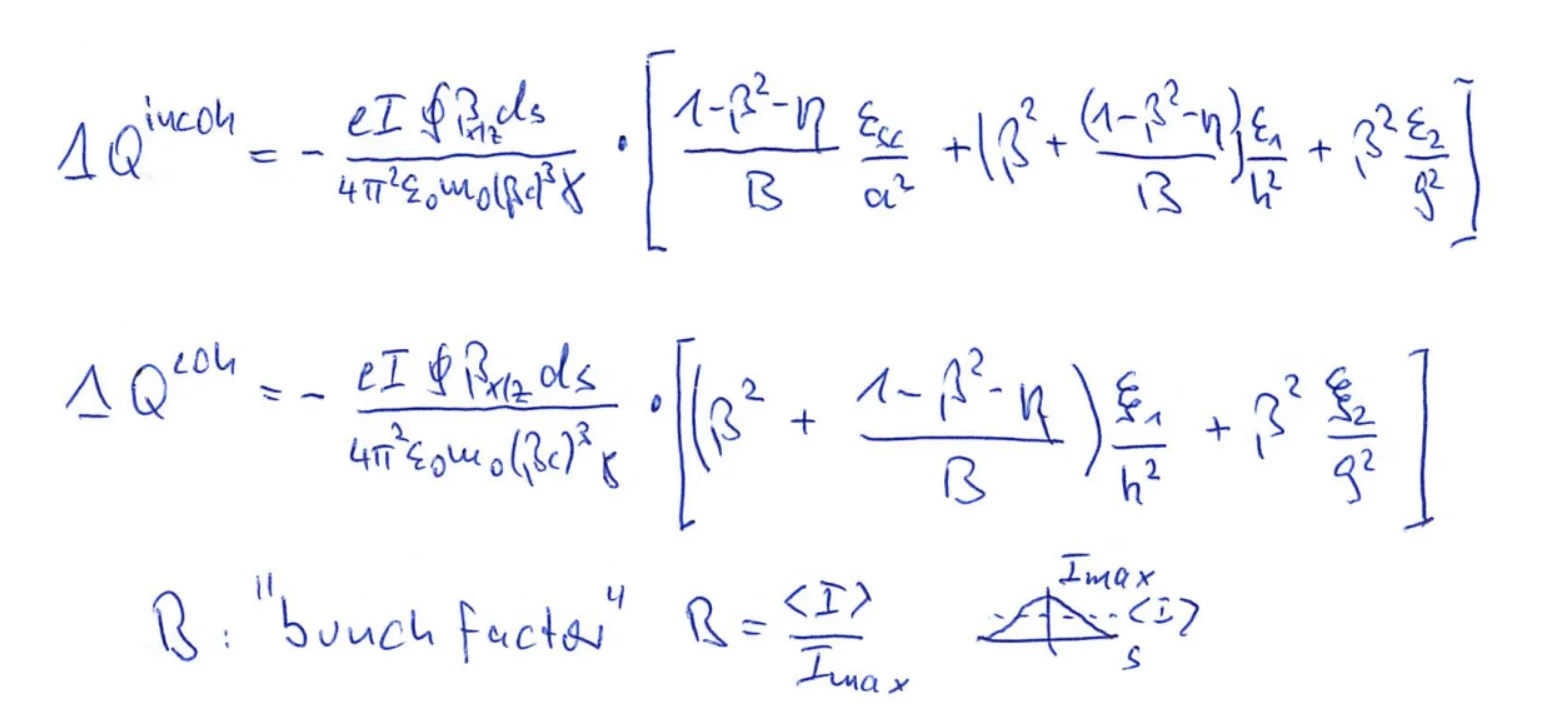 ΔQ^{incoh} = - \frac{eI ∮β_{x/z} ds}{4π²ε₀m₀(βc)³γ} · [ \frac{1-β²-η}{B} \frac{ε_{sc}}{a²} + (β² + \frac{(1-β²-η)}{B}) \frac{ε₁}{h²} + β² \frac{ε₂}{g²} ]
ΔQ^{coh} = - \frac{eI ∮β_{x/z} ds}{4π²ε₀m₀(βc)³γ} · [ (β² + \frac{1-β²-η}{B}) \frac{ξ₁}{h²} + β² \frac{ξ₂}{g²} ]
B : "bunch factor" B = \frac{<I>}{I_{max}} I_{max} <I> s